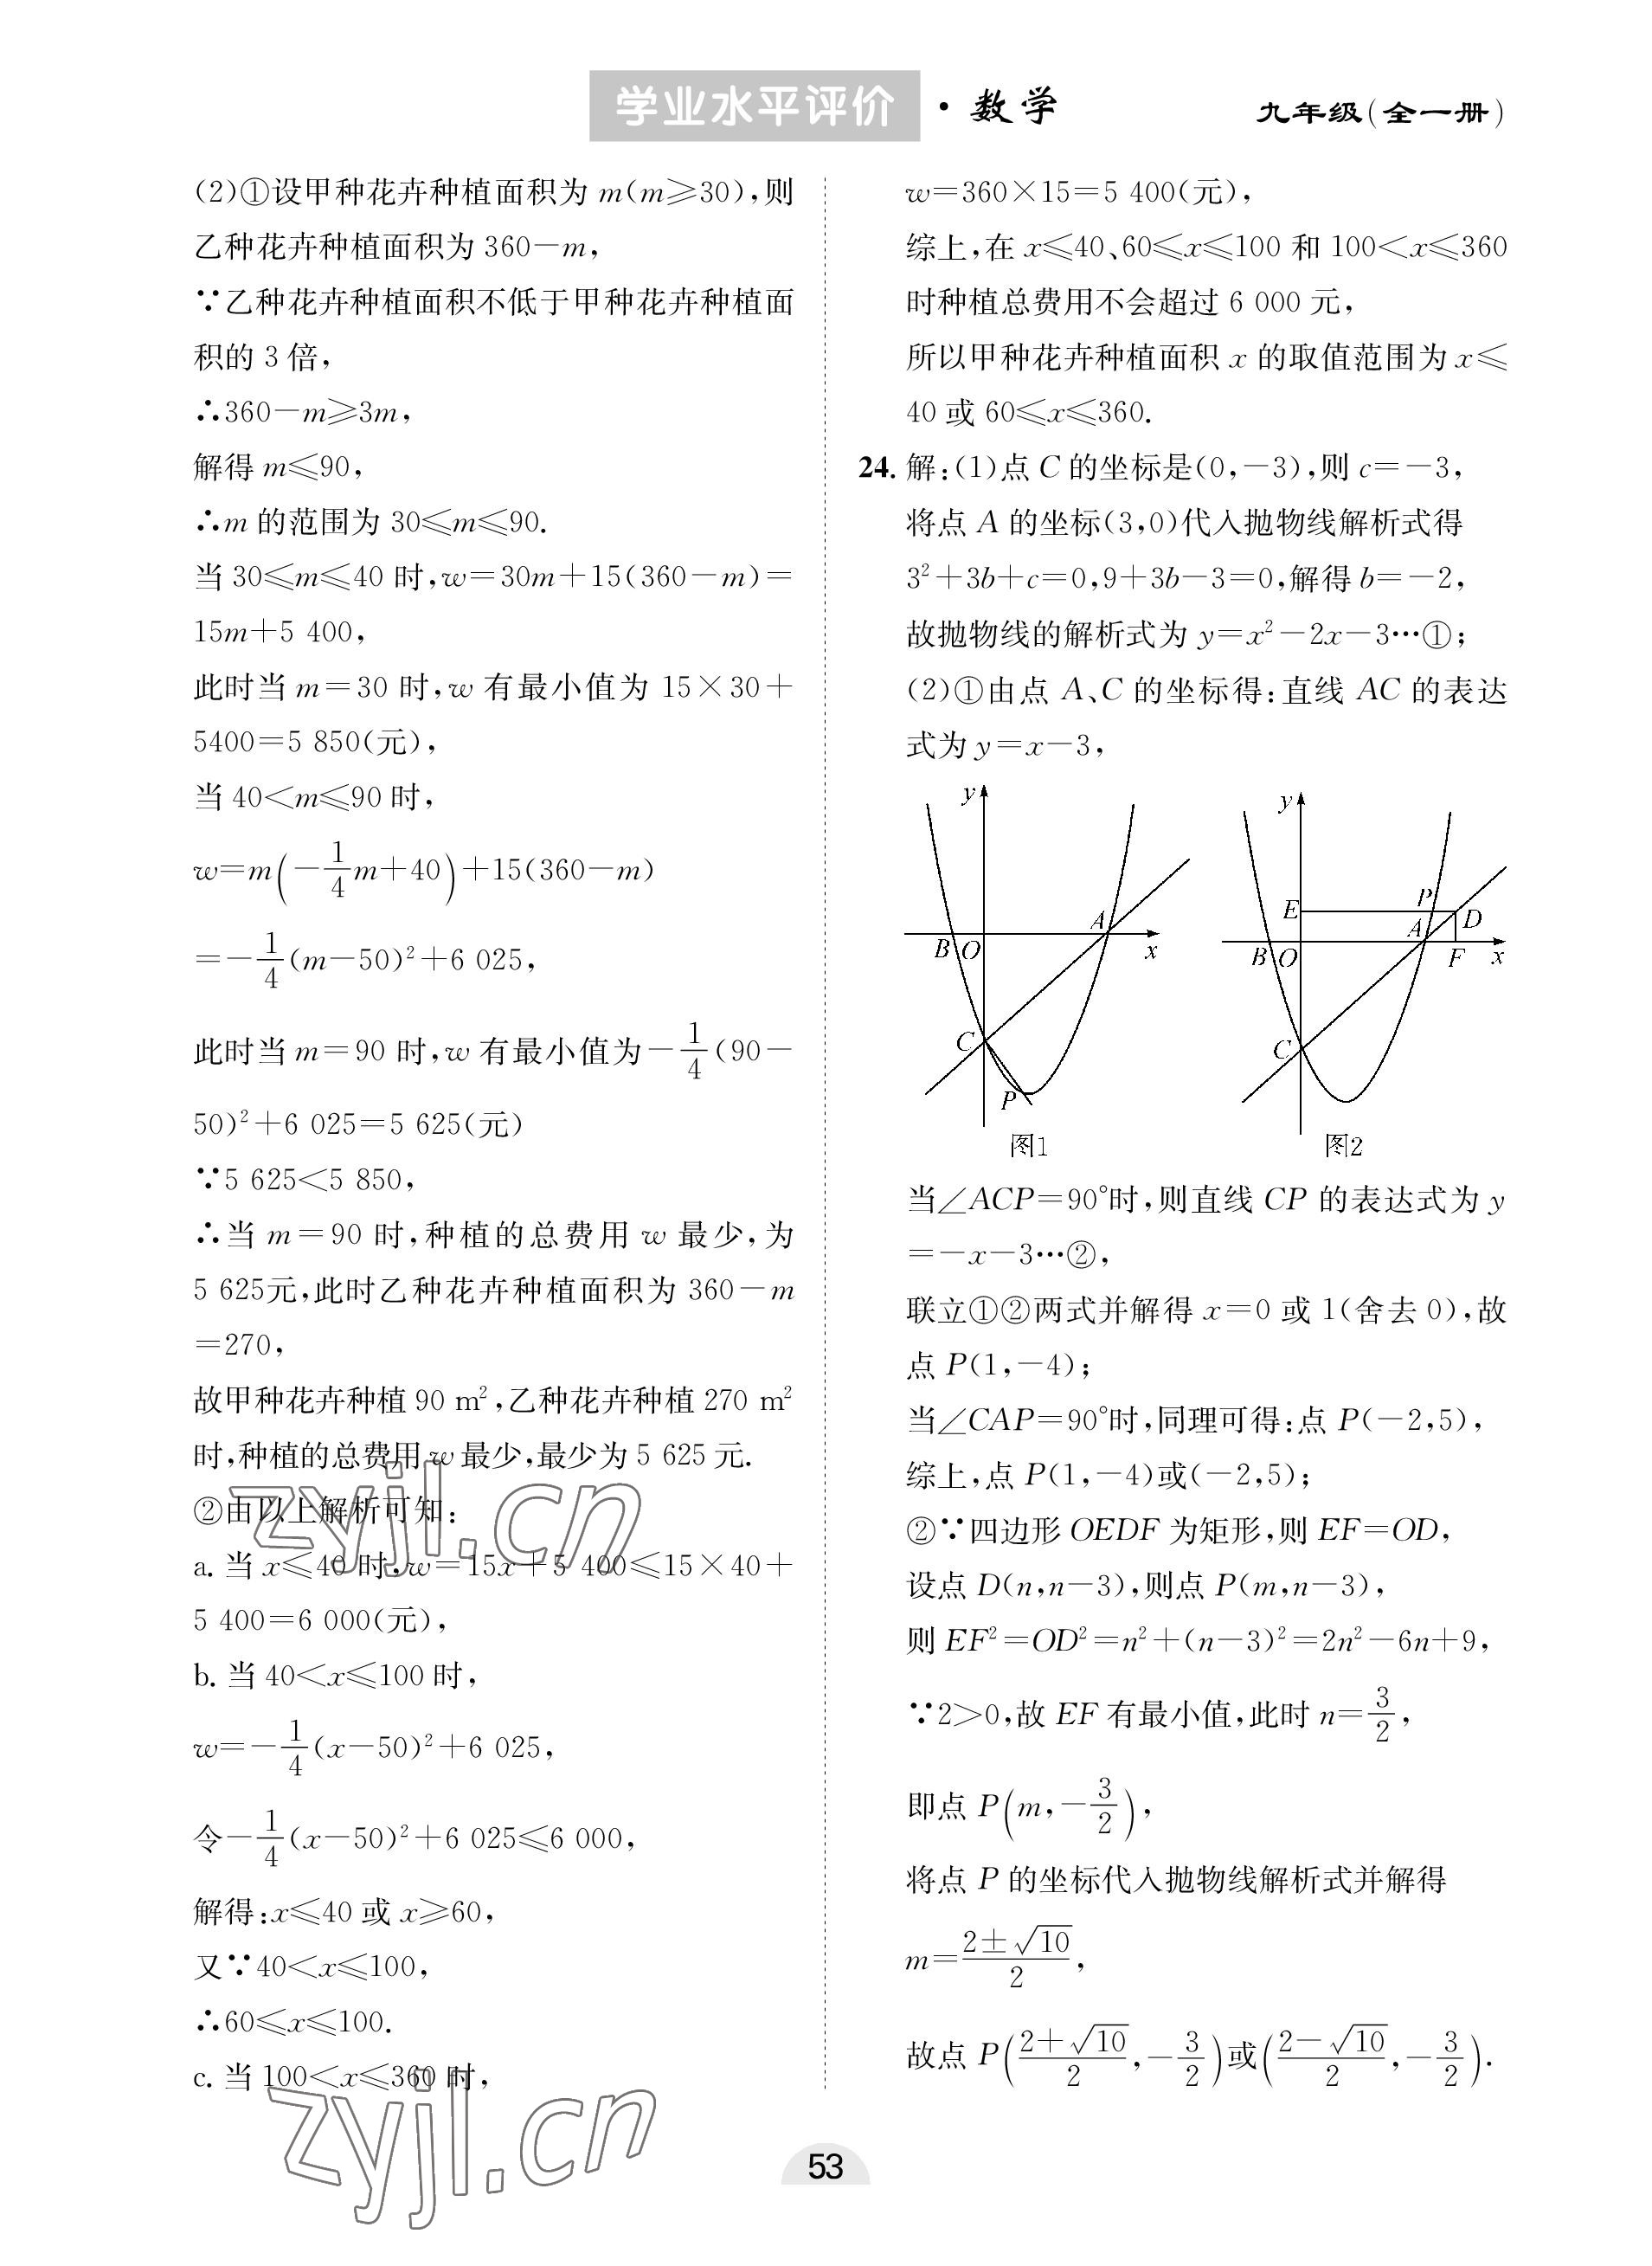 学业水平评价 · 数学 九年级(全一册)
(2)①设甲种花卉种植面积为 m(m≥30),则
乙种花卉种植面积为 360-m,
∵乙种花卉种植面积不低于甲种花卉种植面
积的 3 倍,
∴360-m≥3m,
解得 m≤90,
∴m 的范围为 30≤m≤90.
当 30≤m≤40 时,w=30m+15(360-m)=
15m+5 400,
此时当 m=30 时,w 有最小值为 15×30+
5400=5 850(元),
当 40<m≤90 时,
w=m(-1/4m+40)+15(360-m)
=-1/4(m-50)²+6 025,
此时当 m=90 时,w 有最小值为-1/4(90-
50)²+6 025=5 625(元)
∵5 625<5 850,
∴当 m=90 时,种植的总费用 w 最少,为
5 625元,此时乙种花卉种植面积为 360-m
=270,
故甲种花卉种植 90 m²,乙种花卉种植 270 m²
时,种植的总费用 w 最少,最少为 5 625 元.
②由以上解析可知:
a. 当 x≤40 时,w=15x+5 400≤15×40+
5 400=6 000(元),
b. 当 40<x≤100 时,
w=-1/4(x-50)²+6 025,
令-1/4(x-50)²+6 025≤6 000,
解得:x≤40 或 x≥60,
又∵40<x≤100,
∴60≤x≤100.
c. 当 100<x≤360 时,
w=360×15=5 400(元),
综上,在 x≤40、60≤x≤100 和 100<x≤360
时种植总费用不会超过 6 000 元,
所以甲种花卉种植面积 x 的取值范围为 x≤
40 或 60≤x≤360.
24. 解:(1)点 C 的坐标是(0,-3),则 c=-3,
将点 A 的坐标(3,0)代入抛物线解析式得
3²+3b+c=0,9+3b-3=0,解得 b=-2,
故抛物线的解析式为 y=x²-2x-3…①;
(2)①由点 A、C 的坐标得:直线 AC 的表达
式为 y=x-3,
y
A
B O x
C
P
图1
y
E P D
A
B O F x
C
图2
当∠ACP=90°时,则直线 CP 的表达式为 y
=-x-3…②,
联立①②两式并解得 x=0 或 1(舍去 0),故
点 P(1,-4);
当∠CAP=90°时,同理可得:点 P(-2,5),
综上,点 P(1,-4)或(-2,5);
②∵四边形 OEDF 为矩形,则 EF=OD,
设点 D(n,n-3),则点 P(m,n-3),
则 EF²=OD²=n²+(n-3)²=2n²-6n+9,
∵2>0,故 EF 有最小值,此时 n=3/2,
即点 P(m,-3/2),
将点 P 的坐标代入抛物线解析式并解得
m=(2±√10)/2,
故点 P((2+√10)/2,-3/2)或((2-√10)/2,-3/2).
zyjl.cn
zyjl.cn
53